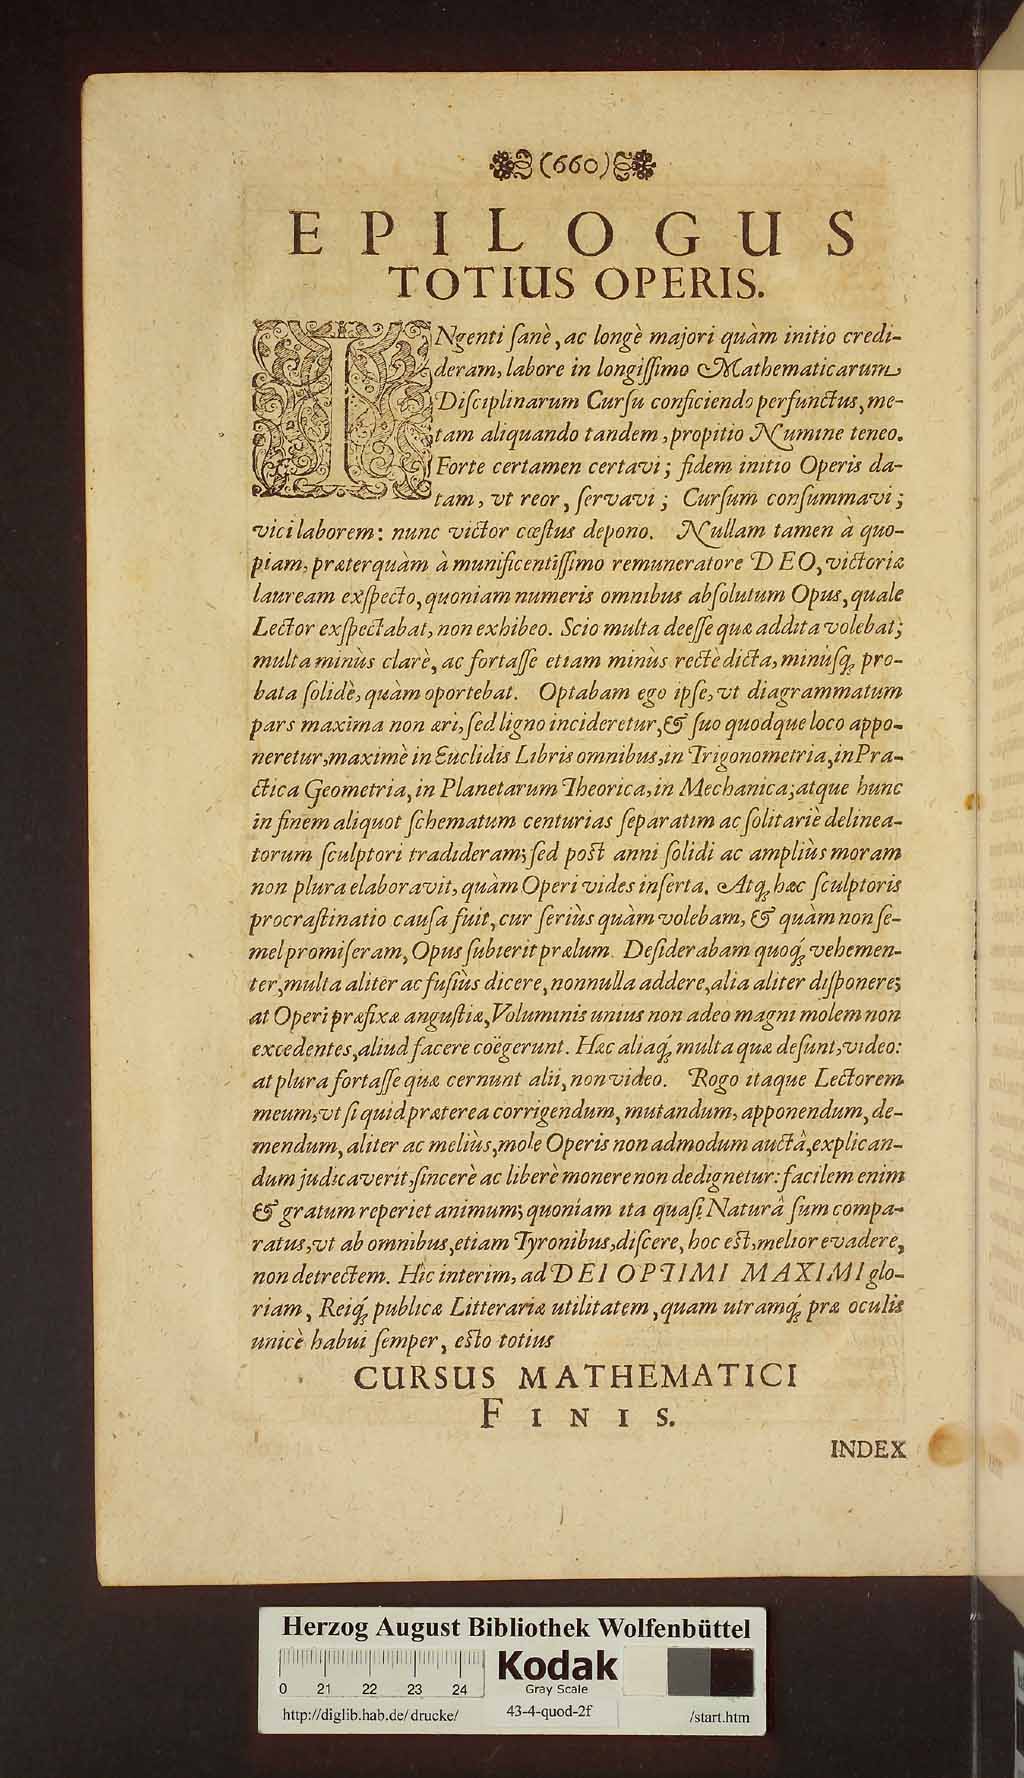 (660)
EPILOGUS
TOTIUS OPERIS.
INgenti ſanè, ac longè majori quàm initio credi-
deram, labore in longiſſimo Mathematicarum
Diſciplinarum Curſu conficiendo perfunctus, me-
tam aliquando tandem, propitio Numine teneo.
Forte certamen certavi; fidem initio Operis da-
tam, vt reor, ſervavi; Curſum conſummavi;
vici laborem: nunc victor cæſtus depono. Nullam tamen à quo-
piam, præterquàm à munificentiſſimo remuneratore DEO, victoriæ
lauream exſpecto, quoniam numeris omnibus abſolutum Opus, quale
Lector exſpectabat, non exhibeo. Scio multa deeſſe quæ addita volebat;
multa minùs clarè, ac fortaſſe etiam minùs rectè dicta, minùſq́; pro-
bata ſolidè, quàm oportebat. Optabam ego ipſe, vt diagrammatum
pars maxima non æri, ſed ligno incideretur, & ſuo quodque loco appo-
neretur, maximè in Euclidis Libris omnibus, in Trigonometria, in Pra-
ctica Geometria, in Planetarum Theorica, in Mechanica; atque hunc
in finem aliquot ſchematum centurias ſeparatim ac ſolitariè delinea-
torum ſculptori tradideram; ſed poſt anni ſolidi ac ampliùs moram
non plura elaboravit, quàm Operi vides inſerta. Atq́; hæc ſculptoris
procraſtinatio cauſa fuit, cur ſeriùs quàm volebam, & quàm non ſe-
mel promiſeram, Opus ſubierit prælum. Deſiderabam quoq́; vehemen-
ter, multa aliter ac fuſiùs dicere, nonnulla addere, alia aliter diſponere;
at Operi præfixæ anguſtiæ, Voluminis unius non adeo magni molem non
excedentes, aliud facere coëgerunt. Hæc aliaq́; multa quæ deſunt, video:
at plura fortaſſe quæ cernunt alii, non video. Rogo itaque Lectorem
meum, vt ſi quid præterea corrigendum, mutandum, apponendum, de-
mendum, aliter ac meliùs, mole Operis non admodum auctâ, explican-
dum judicaverit, ſincerè ac liberè monere non dedignetur: facilem enim
& gratum reperiet animum; quoniam ita quaſi Naturâ ſum compa-
ratus, vt ab omnibus, etiam Tyronibus, diſcere, hoc eſt, melior evadere,
non detrectem. Hîc interim, ad DEI OPTIMI MAXIMI glo-
riam, Reiq́; publicæ Litterariæ utilitatem, quam utramq́; præ oculis
unicè habui ſemper, eſto totius
CURSUS MATHEMATICI
FINIS.
INDEX
Herzog August Bibliothek Wolfenbüttel
0 21 22 23 24
Kodak
Gray Scale
http://diglib.hab.de/drucke/ 43-4-quod-2f /start.htm